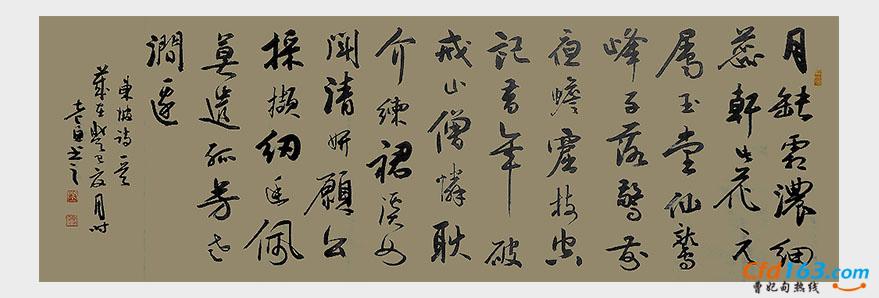 月缺霜濃細
蕊乾此花元
屬玉堂仙鷲
峰子落驚前
夜蟾窟枝空
記昔年破
裓山僧憐耿
介練裙溪女
鬪清妍願公
採擷紉幽佩
莫遣孤芳老
澗邊
東坡詩一首
歲在癸巳夏月
書之
Cfd163.com
曹妃甸热线